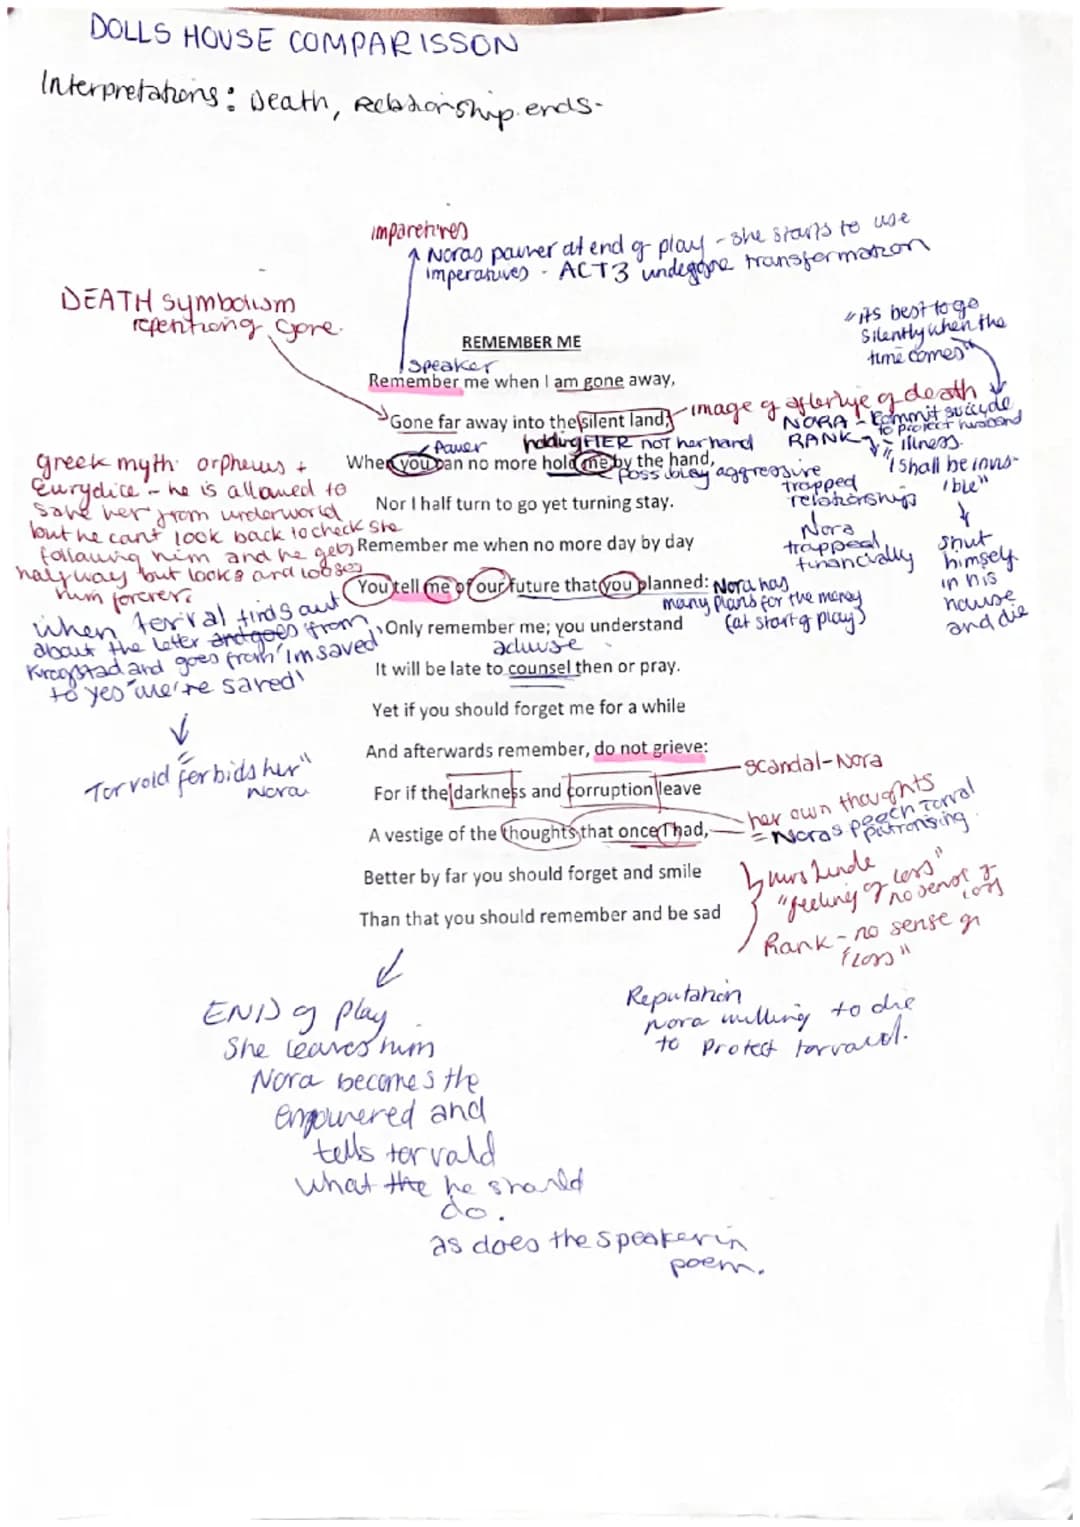 DOLLS HOUSE COMPARISSON
Interpretations: Death, Relationship ends-
imparetives
Noras pawer at end of play - she starts to use
imperatives - ACT 3 undegone transformation
DEATH symbolism
repentiong gone.
"its best to go
Silently when the
time comes"
REMEMBER ME
speaker
Remember me when I am gone away,
Gone far away into the silent land;
image of afterlife of death
NORA - Commit suicide
to protect husband
RANK - illness.
"I shall be invis-
ible"
shut
himself
in his
house
and die
Pawer
holding HER NOT her hand
When you can no more hold me by the hand,
possibley aggressive
trapped
relationships
Nora
trapped
financially
Nor I half turn to go yet turning stay.
greek myth orpheus +
Eurydice - he is allowed to
save her from underworld
but he cant look back to check she
following him and he gets
halfway but looks and looses
hum forever.
Remember me when no more day by day
You tell me of our future that you planned:
Nora has
many plans for the money
(at start of play)
when torval finds out
about the letter and goes from
Krogstad and goes from 'im saved'
to yes "we're saved'
Only remember me; you understand
advise
It will be late to counsel then or pray.
Yet if you should forget me for a while
And afterwards remember, do not grieve:
Torvold "forbids her"
Nora
For if the darkness and corruption leave
scandal-Nora
A vestige of the thoughts that once I had,
her own thoughts
= Noras Torval
patronising.
Better by far you should forget and smile
Than that you should remember and be sad
mrs Linde
"feeling of loss"
no sense of
loss
Rank - no sense of
loss"
END of play
She leaves him
Nora becomes the
empowered and
tells torvald
what the he should
do.
as does the speaker in
poem.
Reputation
Nora willing to die
to protect torvald.